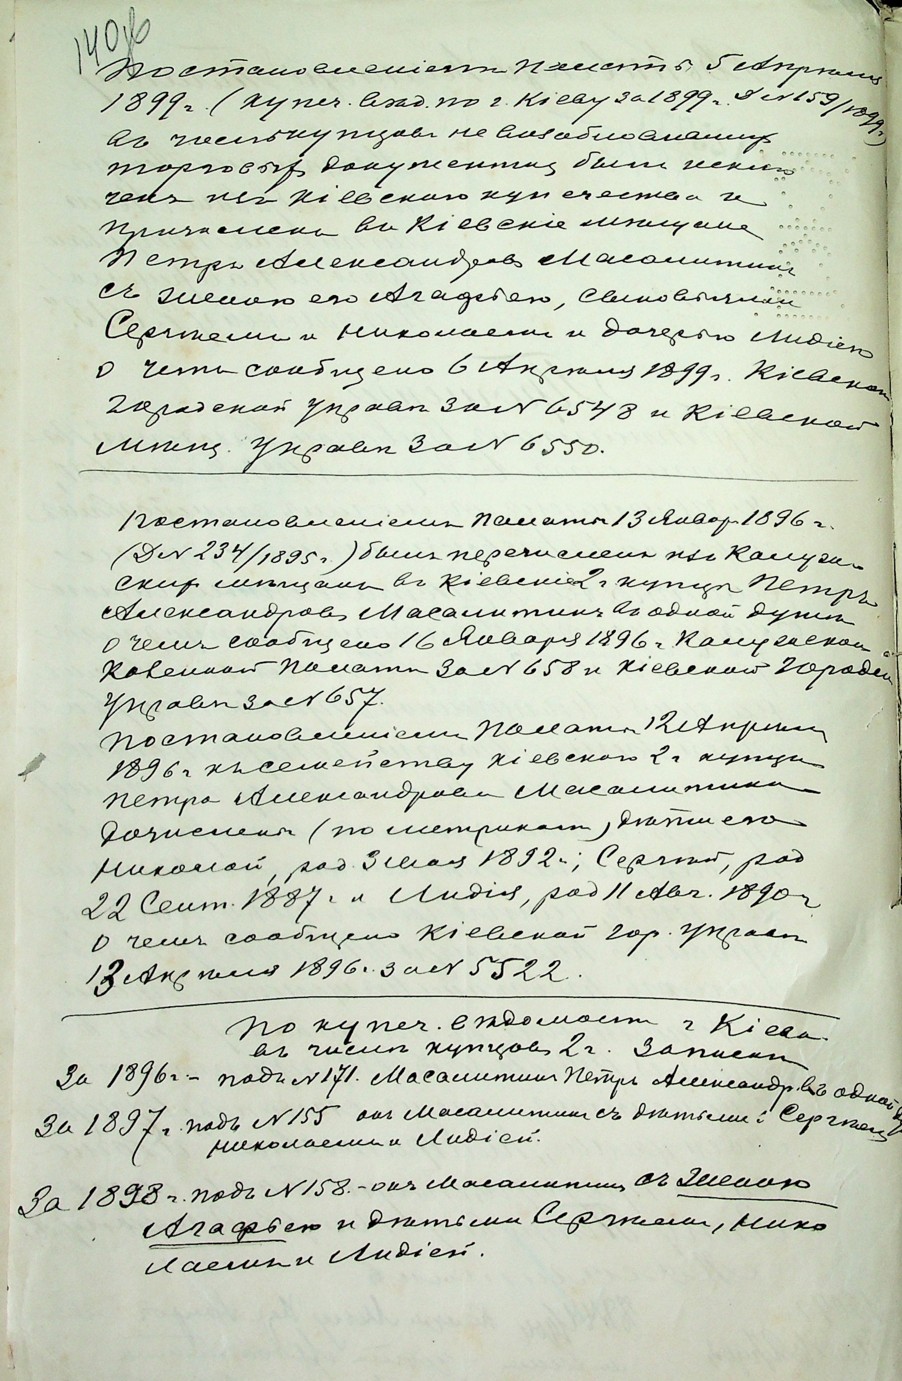 140 об
Постановленіемъ Палаты 5 Апрѣля
1899 г. (купеч. вѣд. по г. Кіеву за 1899 г. Д N 159/1899 г.)
въ числѣ купцовъ не возобновившихъ
торговыхъ документовъ былъ исклю
ченъ изъ Кіевскаго купечества и
причисленъ въ Кіевскіе мѣщане
Петръ Александровъ Масалитинъ
съ женою его Агафьею, сыновьями
Сергѣемъ и Николаемъ и дочерью Лидіею
о чемъ сообщено 6 Апрѣля 1899 г. Кіевской
Городской Управѣ за N 6548 и Кіевской
Мѣщ. Управѣ за N 6550.
Постановленіемъ Палаты 13 Январ. 1896 г.
(Д N 234/1895 г.) былъ перечисленъ изъ Калуж-
скихъ мѣщанъ въ Кіевскіе 2 г. купцы Петръ
Александровъ Масалитинъ въ одной душѣ
о чемъ сообщено 16 Января 1896 г. Калужской
Казенной Палатѣ за N 658 и Кіевской Городск.
Управѣ за N 657.
Постановленіемъ Палаты 12 Апрѣля
1896 г. къ семейству Кіевскаго 2 г. купца
Петра Александрова Масалитина
дочислены (по метрикамъ) дѣти его
Николай, род. 3 мая 1892 г.; Сергѣй, род.
22 Сент. 1887 г. и Лидія, род. 11 Авг. 1890 г.
о чемъ сообщено Кіевской гор. Управѣ
13 Апрѣля 1896 г. за N 5522.
По купеч. вѣдомости г. Кіева
въ числѣ купцовъ 2 г. записаны
За 1896 г. - подъ N 171. Масалитинъ Петръ Александр. въ одной д.
За 1897 г. подъ N 155 онъ Масалитинъ съ дѣтьми: Сергѣемъ
Николаемъ и Лидіей.
За 1898 г. подъ N 158. - онъ Масалитинъ съ женою
Агафьею и дѣтьми Сергѣемъ, Нико
лаемъ и Лидіей.